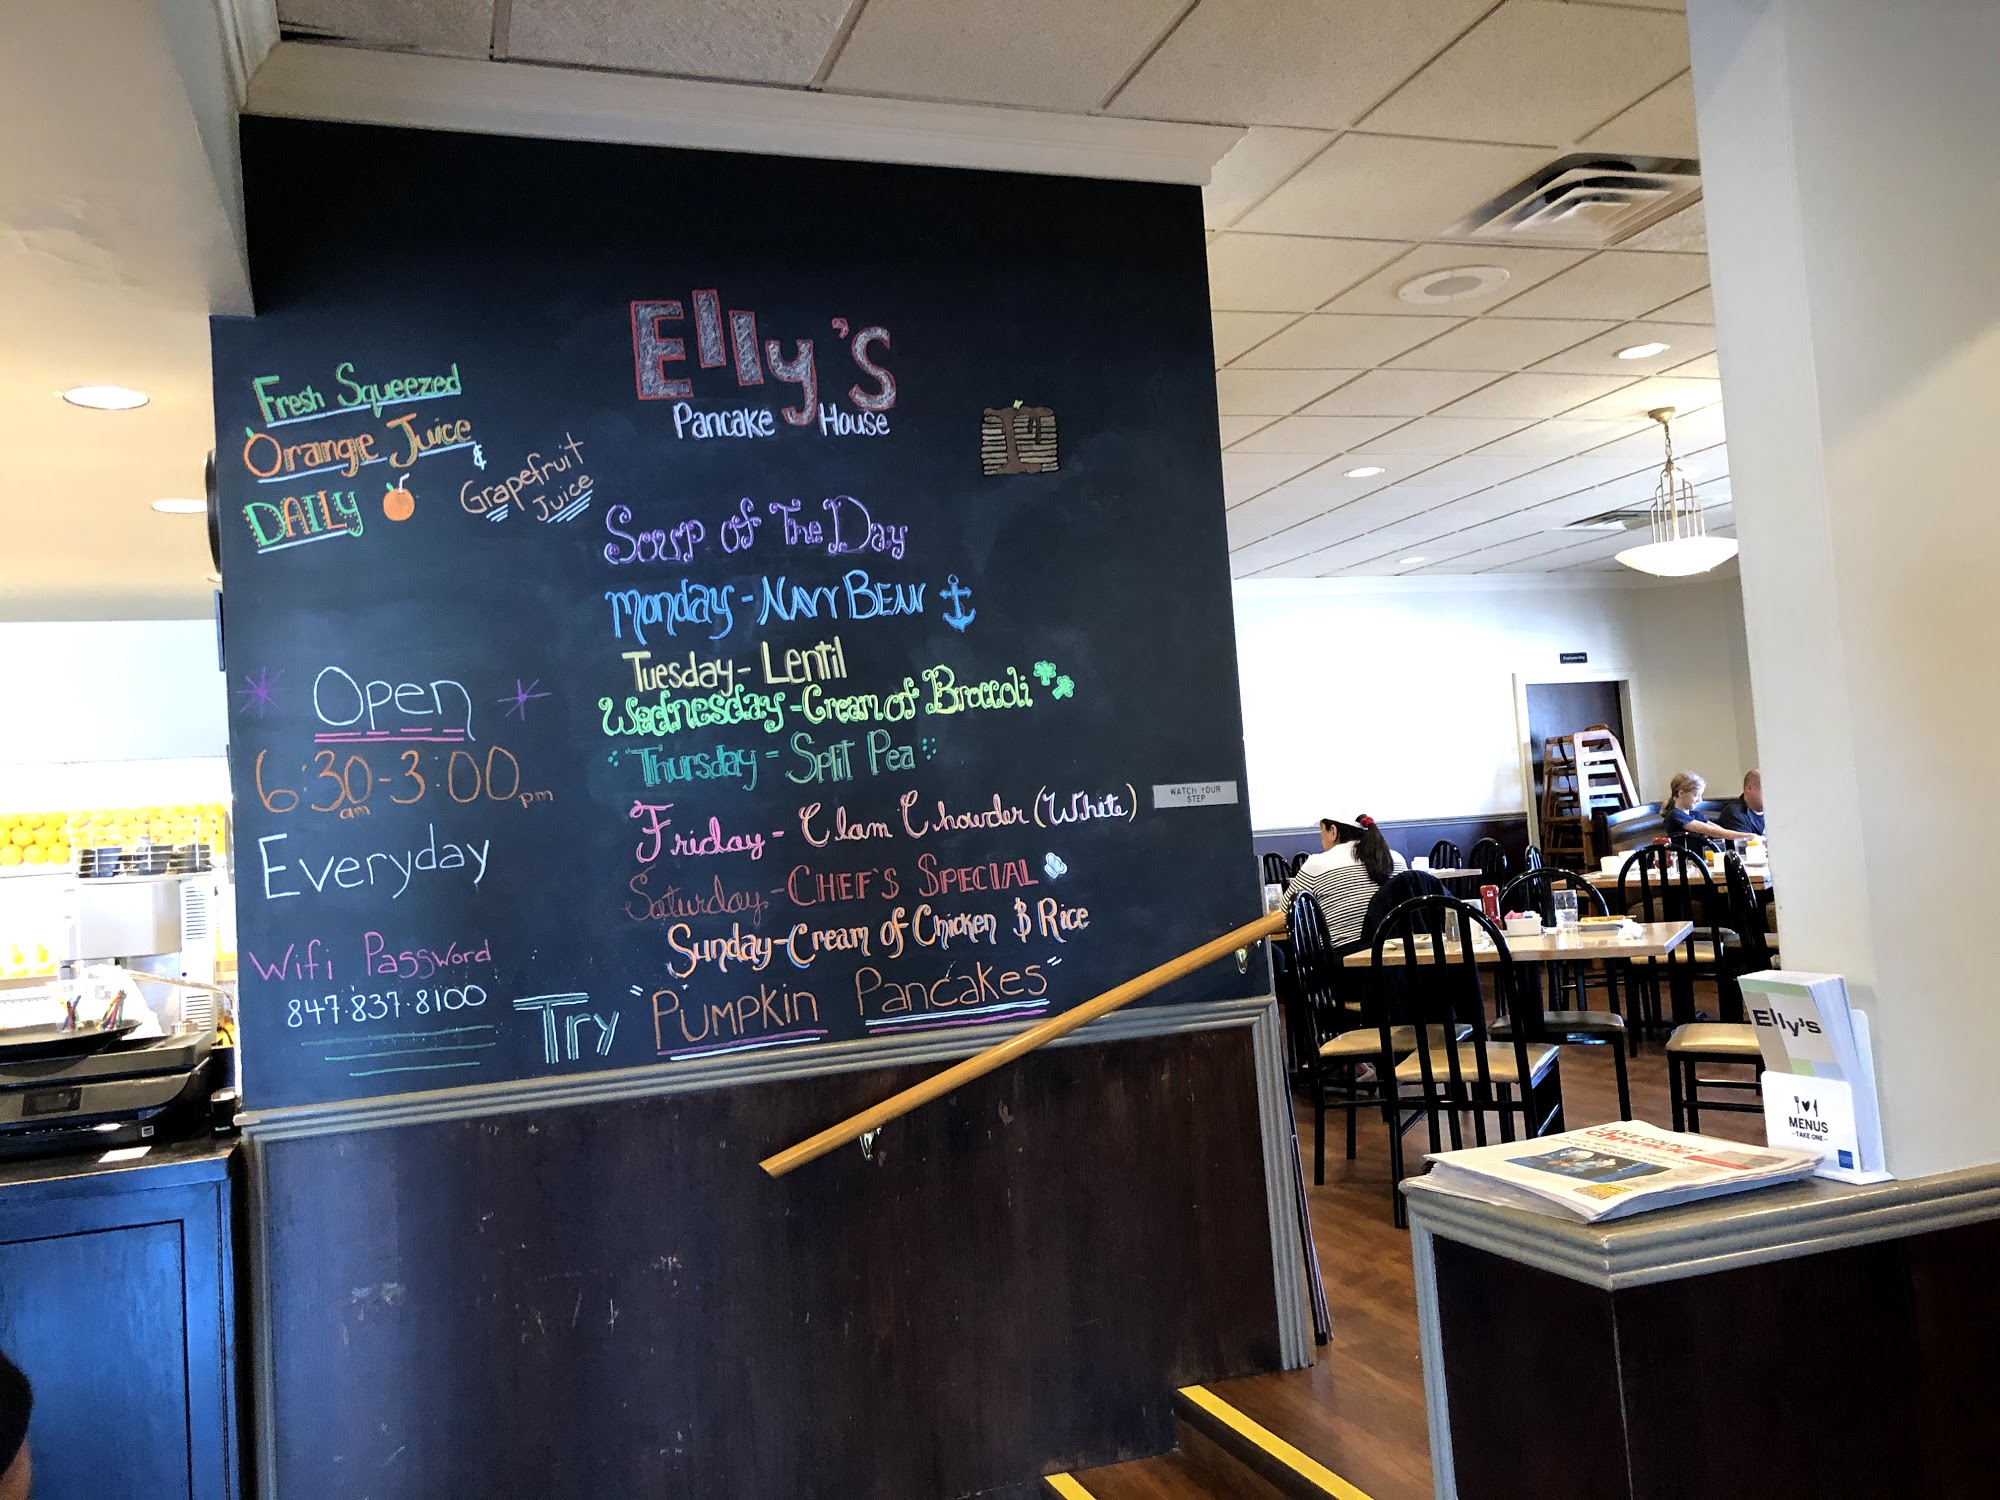 Elly's
Pancake House
Fresh Squeezed
Orange Juice
&
Grapefruit
Juice
DAILY
Soup of The Day
Monday - NAVY BEAN
Tuesday - Lentil
Wednesday - Cream of Broccoli
Thursday - Split Pea
Friday - Clam Chowder (White)
Saturday - CHEF'S SPECIAL
Sunday - Cream of Chicken & Rice
Try "Pumpkin Pancakes"
Open
6:30am - 3:00pm
Everyday
Wifi Password
847·837·8100
WATCH YOUR
STEP
Elly's
MENUS
- TAKE ONE -